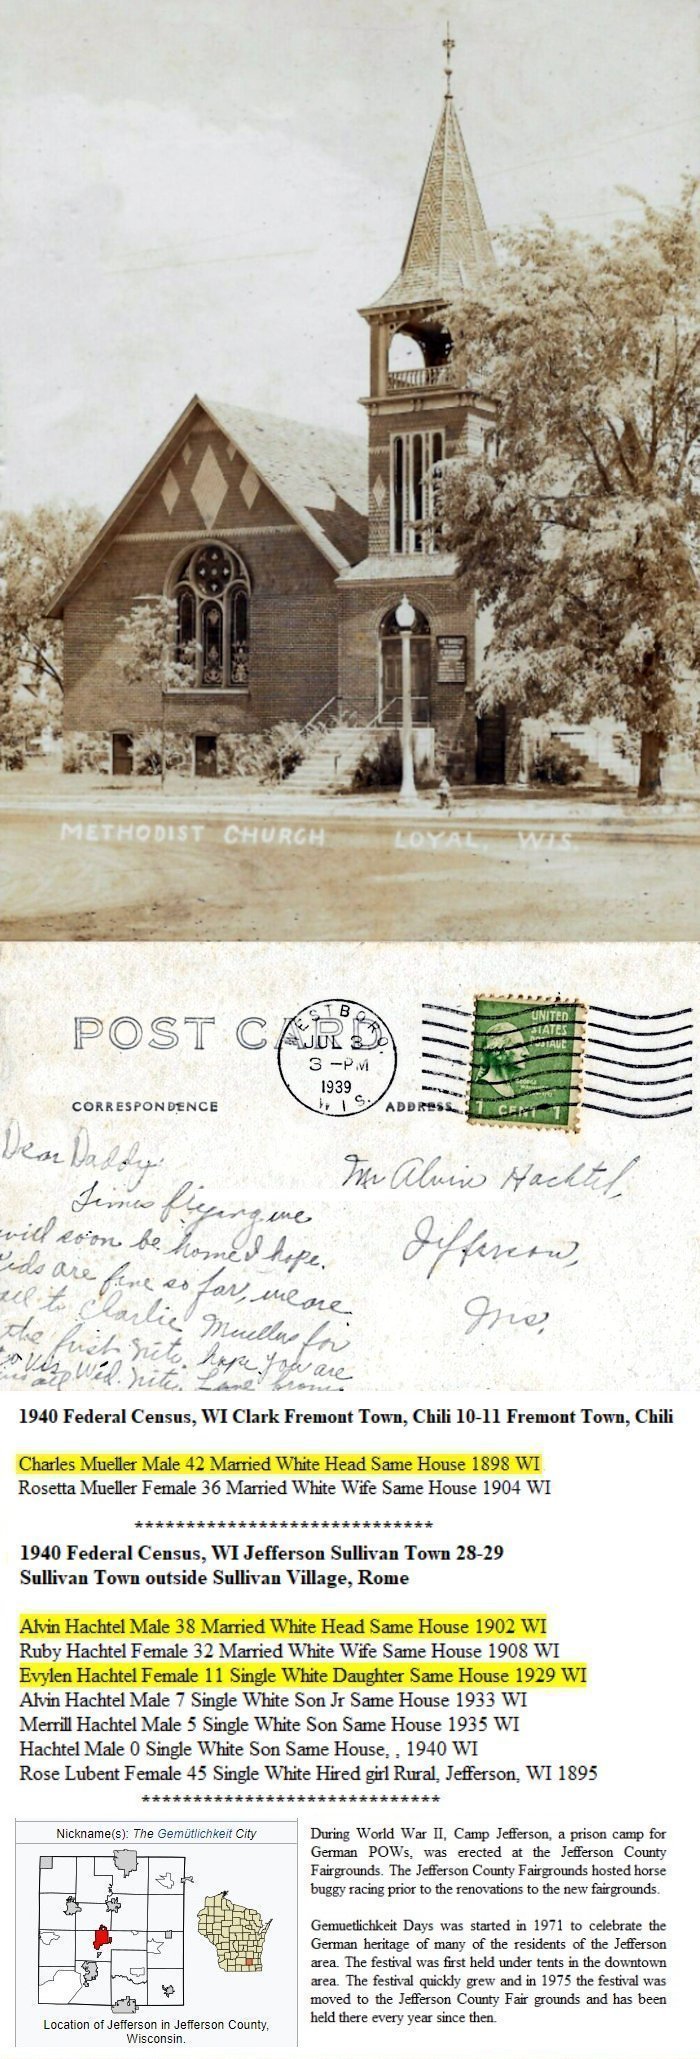 METHODIST CHURCH LOYAL, WIS.
METHODIST
POST CARD
WESTBORO,
JUL 3
3 - PM
1939
WIS.
UNITED
STATES
POSTAGE
1 CENT 1
CORRESPONDENCE
ADDRESS
Dear Daddy:
Times flying we
will soon be home I hope.
Kids are fine so far, we are
to Charlie Muellers for
the first nite. hope you are
Wed. nite. Love
Mr Alvin Hachtel,
Jefferson,
Wis.
1940 Federal Census, WI Clark Fremont Town, Chili 10-11 Fremont Town, Chili
Charles Mueller Male 42 Married White Head Same House 1898 WI
Rosetta Mueller Female 36 Married White Wife Same House 1904 WI
*****************************
1940 Federal Census, WI Jefferson Sullivan Town 28-29
Sullivan Town outside Sullivan Village, Rome
Alvin Hachtel Male 38 Married White Head Same House 1902 WI
Ruby Hachtel Female 32 Married White Wife Same House 1908 WI
Evylen Hachtel Female 11 Single White Daughter Same House 1929 WI
Alvin Hachtel Male 7 Single White Son Jr Same House 1933 WI
Merrill Hachtel Male 5 Single White Son Same House 1935 WI
Hachtel Male 0 Single White Son Same House, , 1940 WI
Rose Lubent Female 45 Single White Hired girl Rural, Jefferson, WI 1895
*****************************
Nickname(s): The Gemütlichkeit City
Location of Jefferson in Jefferson County,
Wisconsin.
During World War II, Camp Jefferson, a prison camp for
German POWs, was erected at the Jefferson County
Fairgrounds. The Jefferson County Fairgrounds hosted horse
buggy racing prior to the renovations to the new fairgrounds.
Gemuetlichkeit Days was started in 1971 to celebrate the
German heritage of many of the residents of the Jefferson
area. The festival was first held under tents in the downtown
area. The festival quickly grew and in 1975 the festival was
moved to the Jefferson County Fair grounds and has been
held there every year since then.